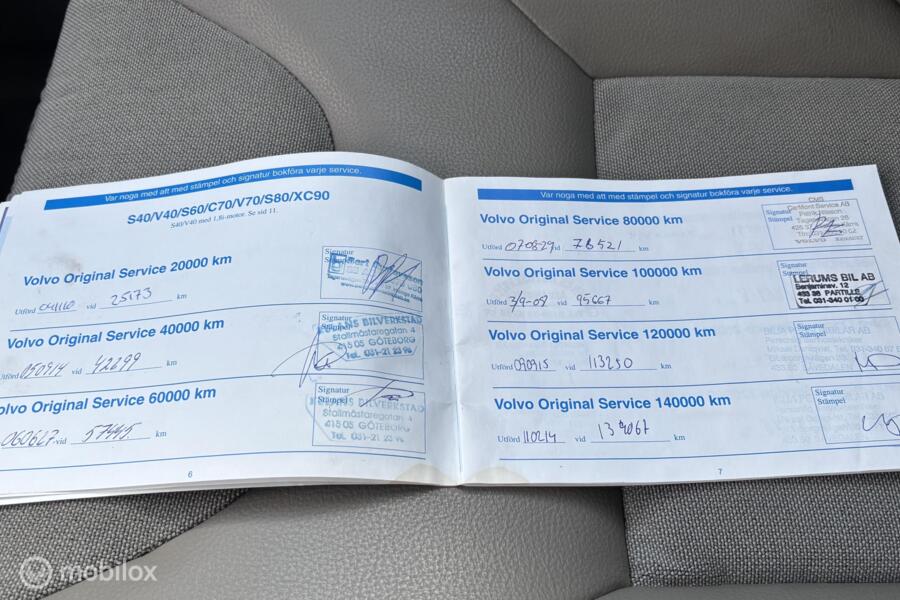 Var noga med att med stämpel och signatur bokföra varje service.
S40/V40/S60/C70/V70/S80/XC90
S40/V40 med 1,8i-motor. Se sid 11.
Volvo Original Service 20000 km
Utförd 041110 vid 25173 km
Signatur
Stämpel
Volvo Original Service 40000 km
Utförd 050914 vid 42299 km
BILVERKSTAD
Stallmästaregatan 4
415 05 GÖTEBORG
Tel. 031-21 23 96
Volvo Original Service 60000 km
060627 vid 57445 km
Signatur
BILVERKSTAD
Stallmästaregatan 4
415 05 GÖTEBORG
Tel. 031-21 23 96
6
Var noga med att med stämpel och signatur bokföra varje service.
Volvo Original Service 80000 km
Utförd 070829 vid 78521 km
Signatur
Stämpel
CMS
CarMont Service AB
VOLVO
Volvo Original Service 100000 km
Utförd 3/9-08 vid 95667 km
Signatur
Stämpel
LERUMS BIL AB
Benjaminsv. 12
433 38 PARTILLE
Tel. 031-340 01 00
Volvo Original Service 120000 km
Utförd 090915 vid 113250 km
Signatur
Stämpel
Volvo Original Service 140000 km
Utförd 110214 vid km
Signatur
Stämpel
7
mobilox